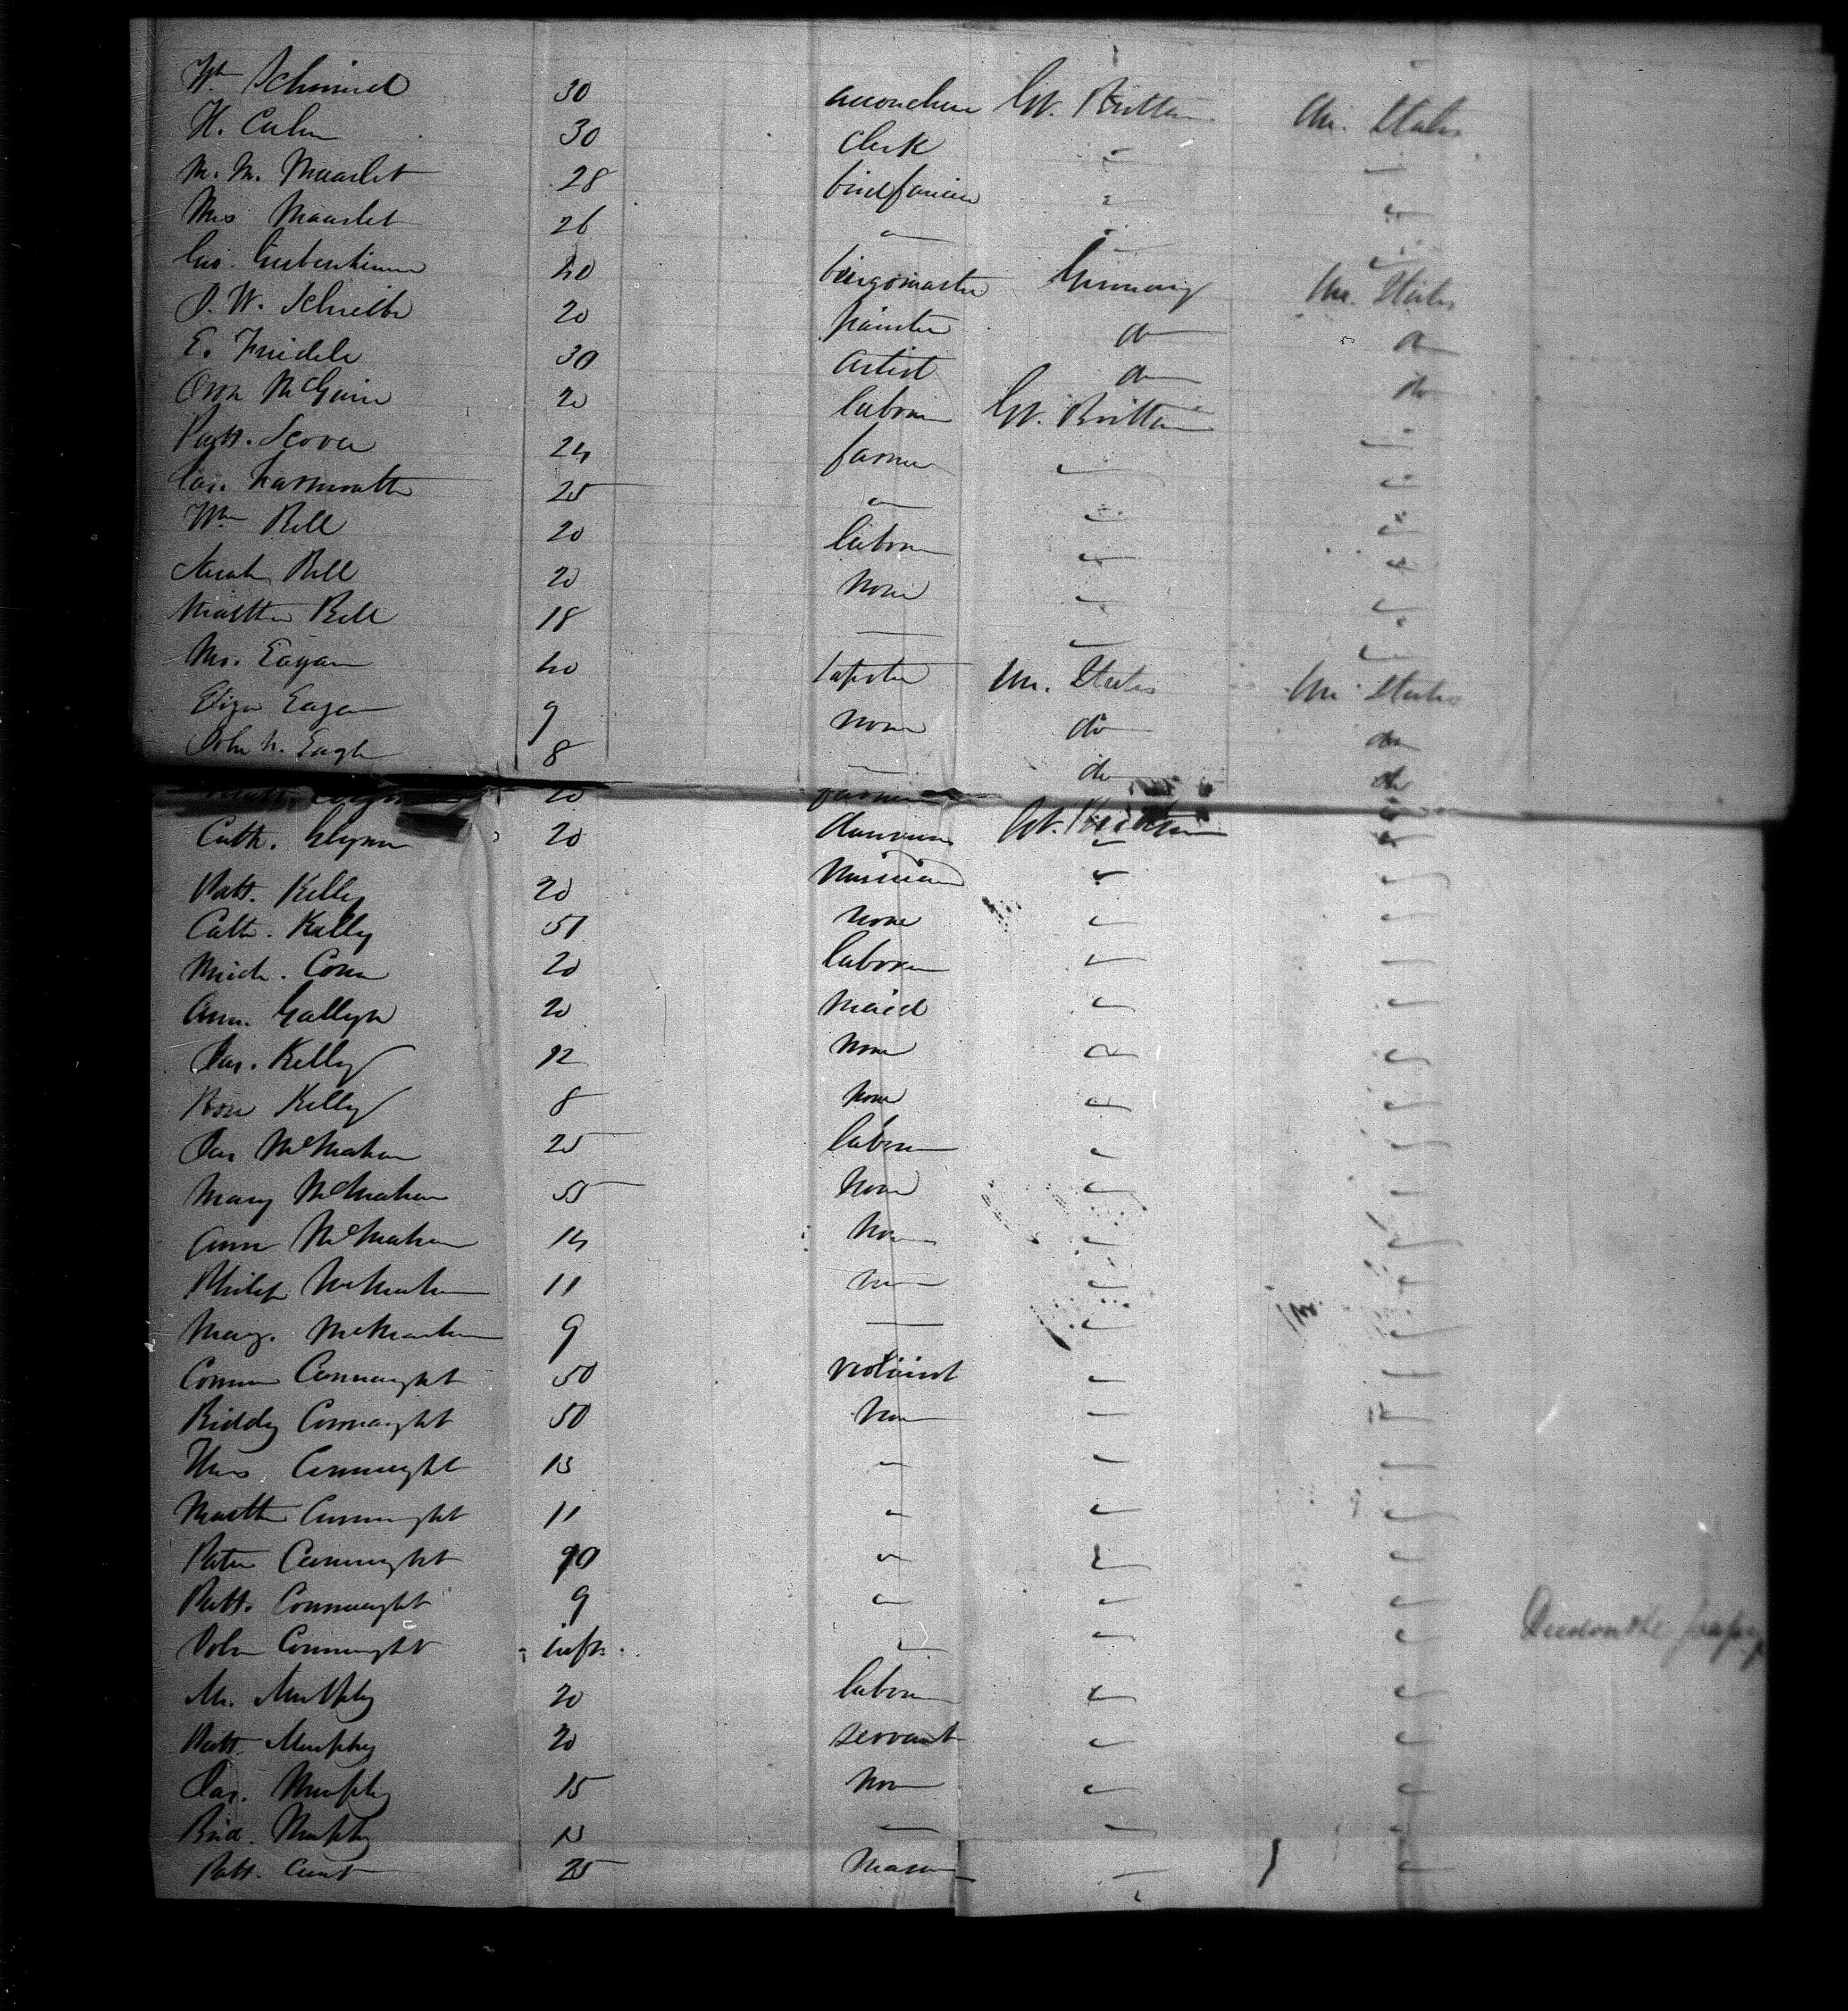 Wm Schmied 30 accoucheur Gt. Brittain Un. States
H. Cahn 30 clerk
M. M. Maaslet 28 "
Mrs Maaslet 26 "
40 burgomaster Germany Un. States
J. W. Schreiber 20 painter do do
E. Friedele 30 artist do do
Own McGuire 20 laborer Gt. Brittain
Patt. 24 farmer
25 "
Wm Bell 20 laborer
Sarah Bell 20 none
Matthew Bell 18 —
Mr. Eagan 40 tapster Un. States Un. States
Eliza Eagan 9 none do do
John N. Eagan 8 — do do
20 farmer Gt. Brittain
Cath. Glynn 20
Patt. Kelly 20 Musician
Cath. Kelly 51 none
Mich. Conn 20 laborer
Ann. 20 maid
Jas. Kelly 12 none
Rose Kelly 8 none
Jas McMahan 25 laborer
Mary McMahan 55 none
Ann McMahan 14 none
Philip McMahan 11 none
Marg. McMahan 9 —
Connaught 50 violinist
Biddy Connaught 50 none
Thos Connaught 13 "
Matth Connaught 11 "
Peter Connaught 10 "
Patt. Connaught 9 "
John Connaught inft. " Died on the passage
M. Murphy 20 laborer
Patt Murphy 20 servant
Jas. Murphy 15 none
Brid. Murphy 13 —
Patt. 25 mason